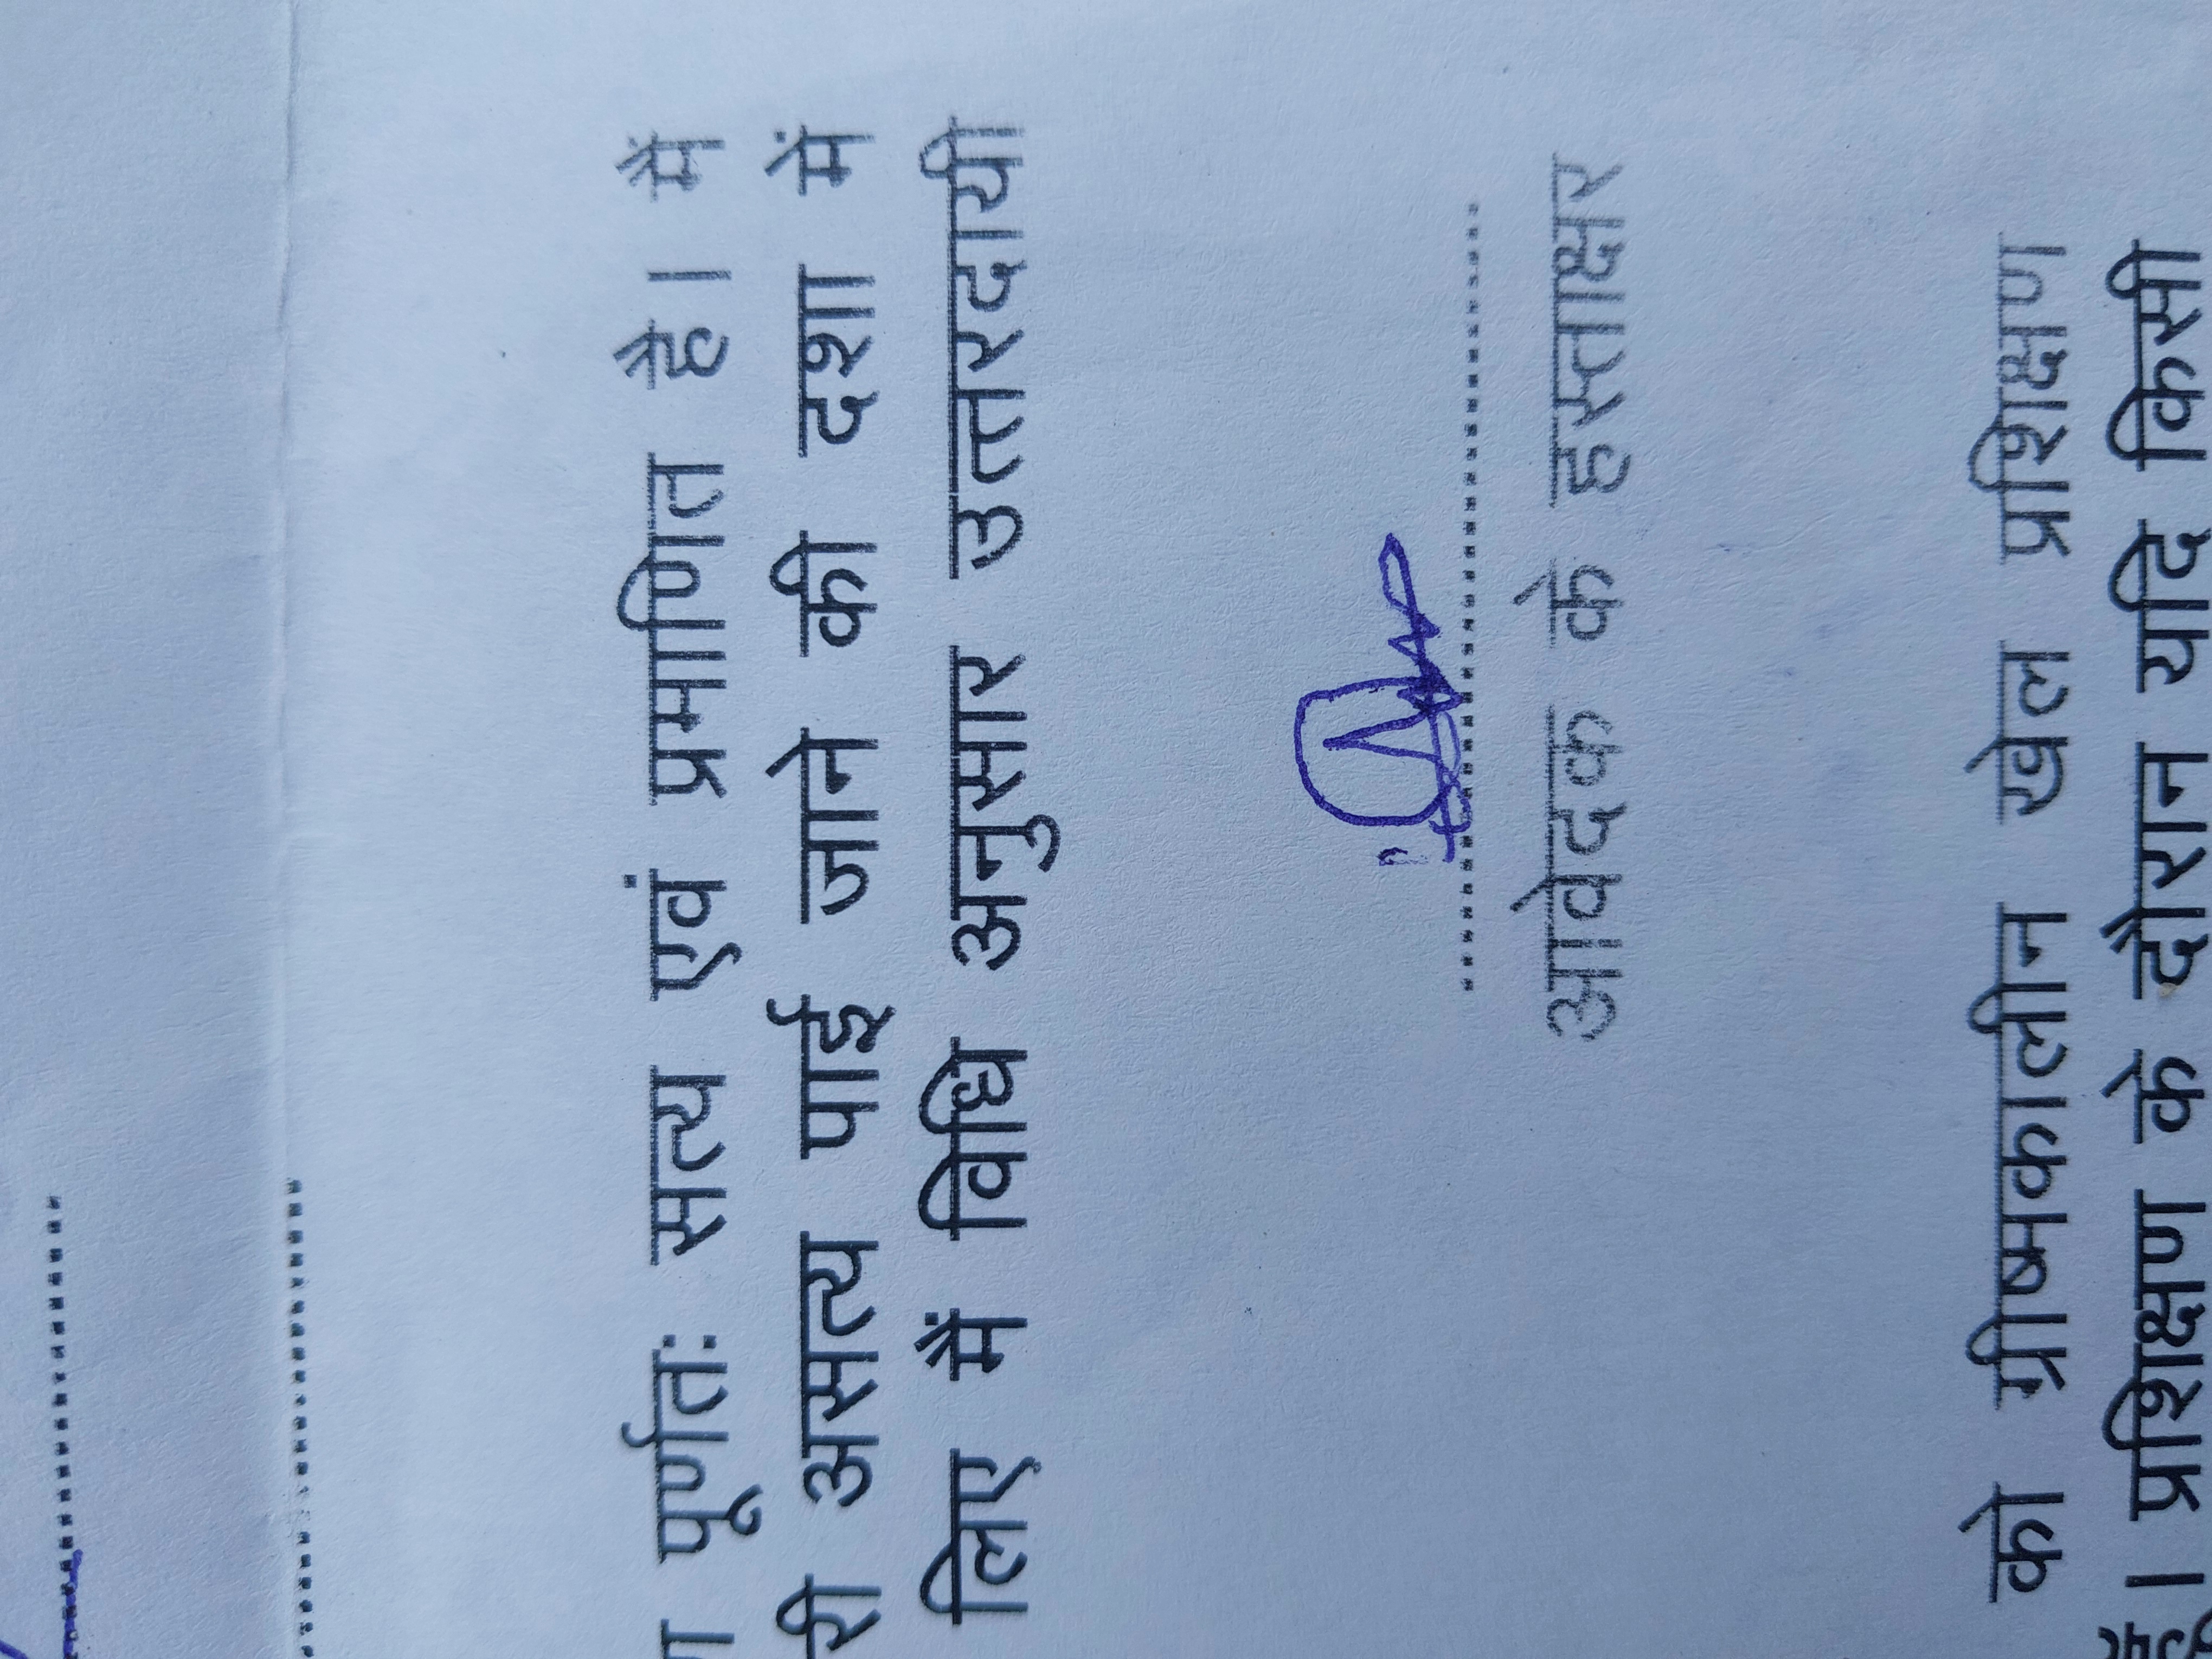 पूर्णतः सत्य एवं प्रमाणित है। मैं
री असत्य पाई जाने की दशा में
लिए मैं विधि अनुसार उत्तरदायी
आवेदक के हस्ताक्षर
को ग्रीष्मकालीन खेल प्रशिक्षण
हूँ। प्रशिक्षण के दौरान यदि किसी